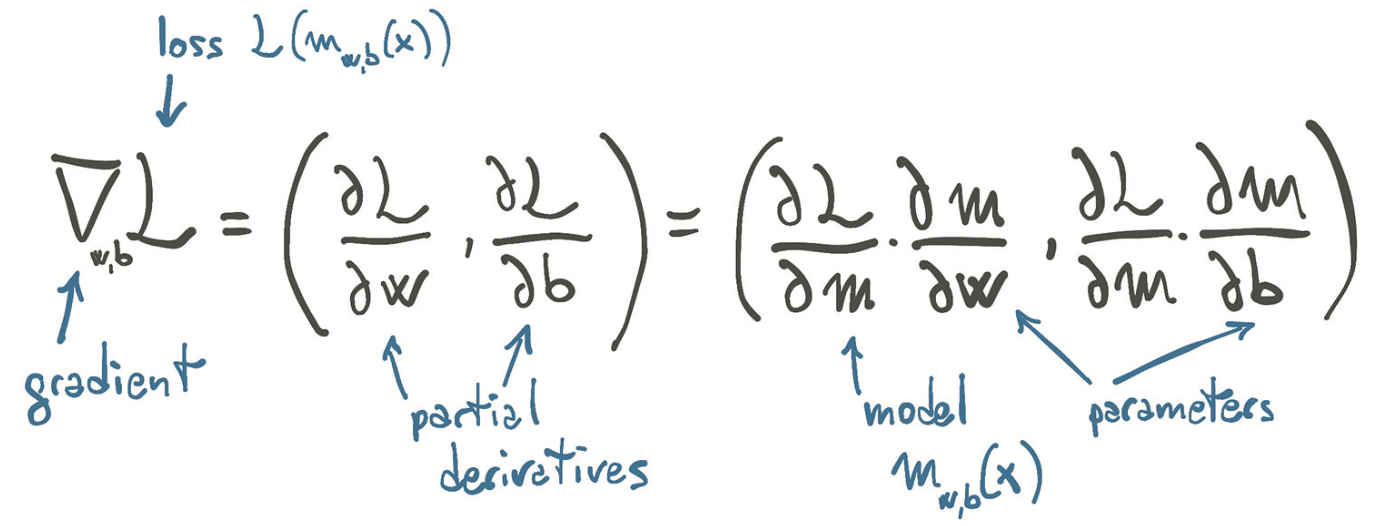 loss L(m_w,b(x))
∇_w,b L = (∂L/∂w , ∂L/∂b) = (∂L/∂m · ∂m/∂w , ∂L/∂m · ∂m/∂b)
gradient
partial
derivatives
model
m_w,b(x)
parameters